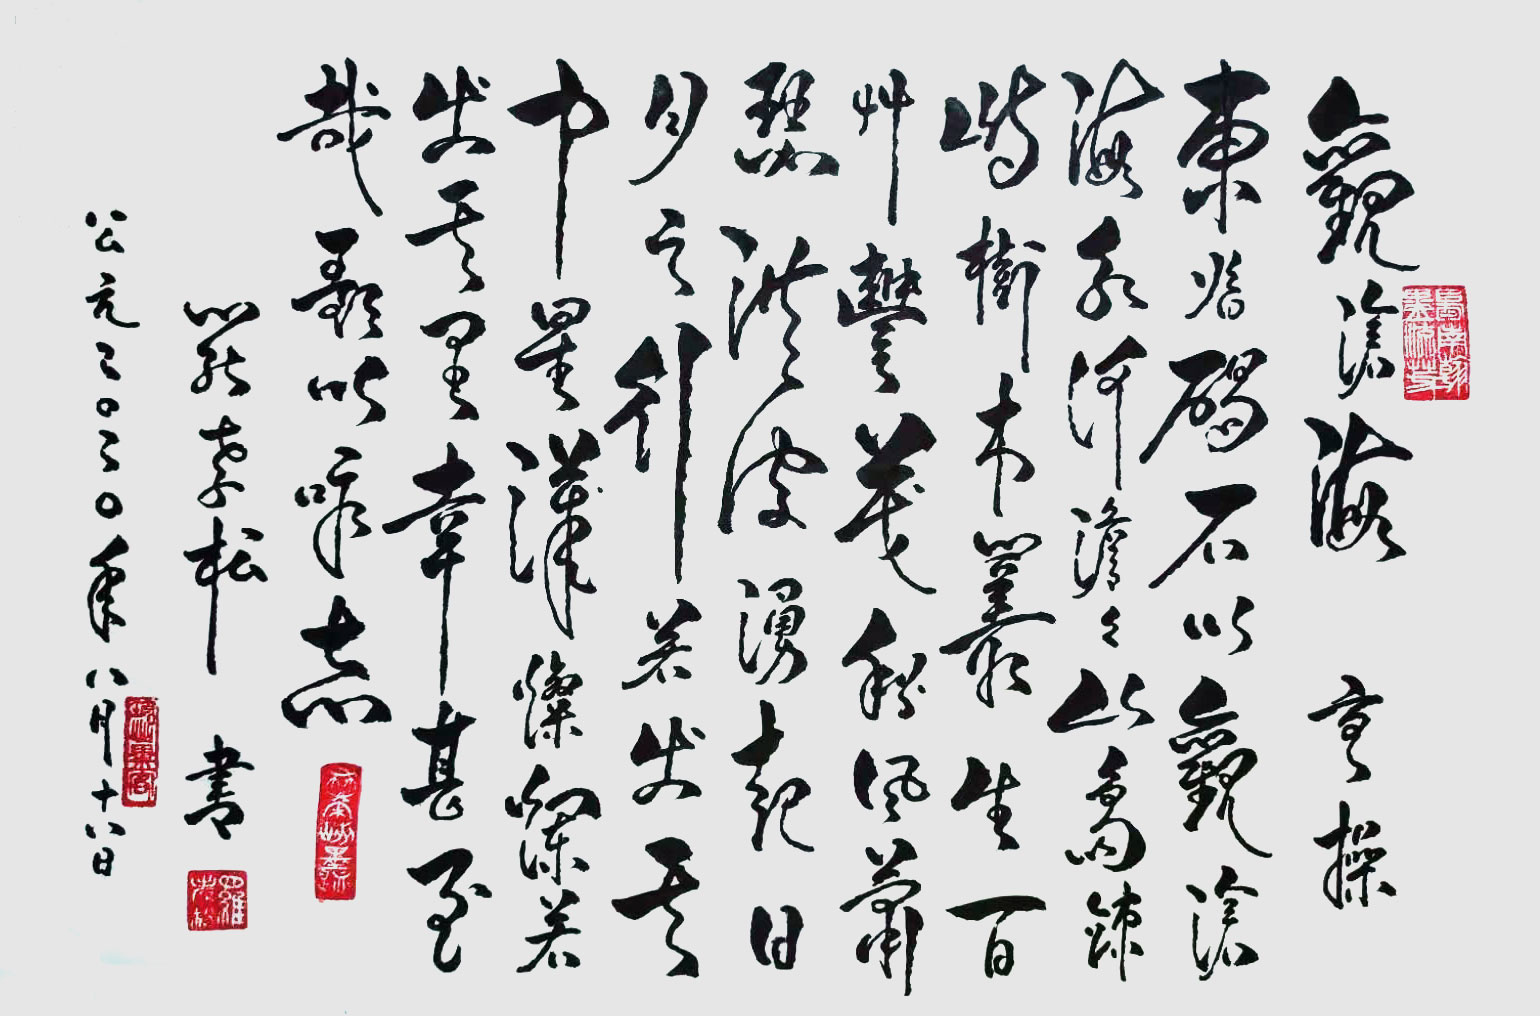 觀滄海 曹操
東臨碣石以觀滄
海水何澹々山島竦
峙樹木叢生百
艸豐茂秋風蕭
瑟洪波湧起日
月之行若出其
中星漢燦爛若
出其里幸甚至
哉歌以詠志
松 書
公元二〇二〇年八月十八日